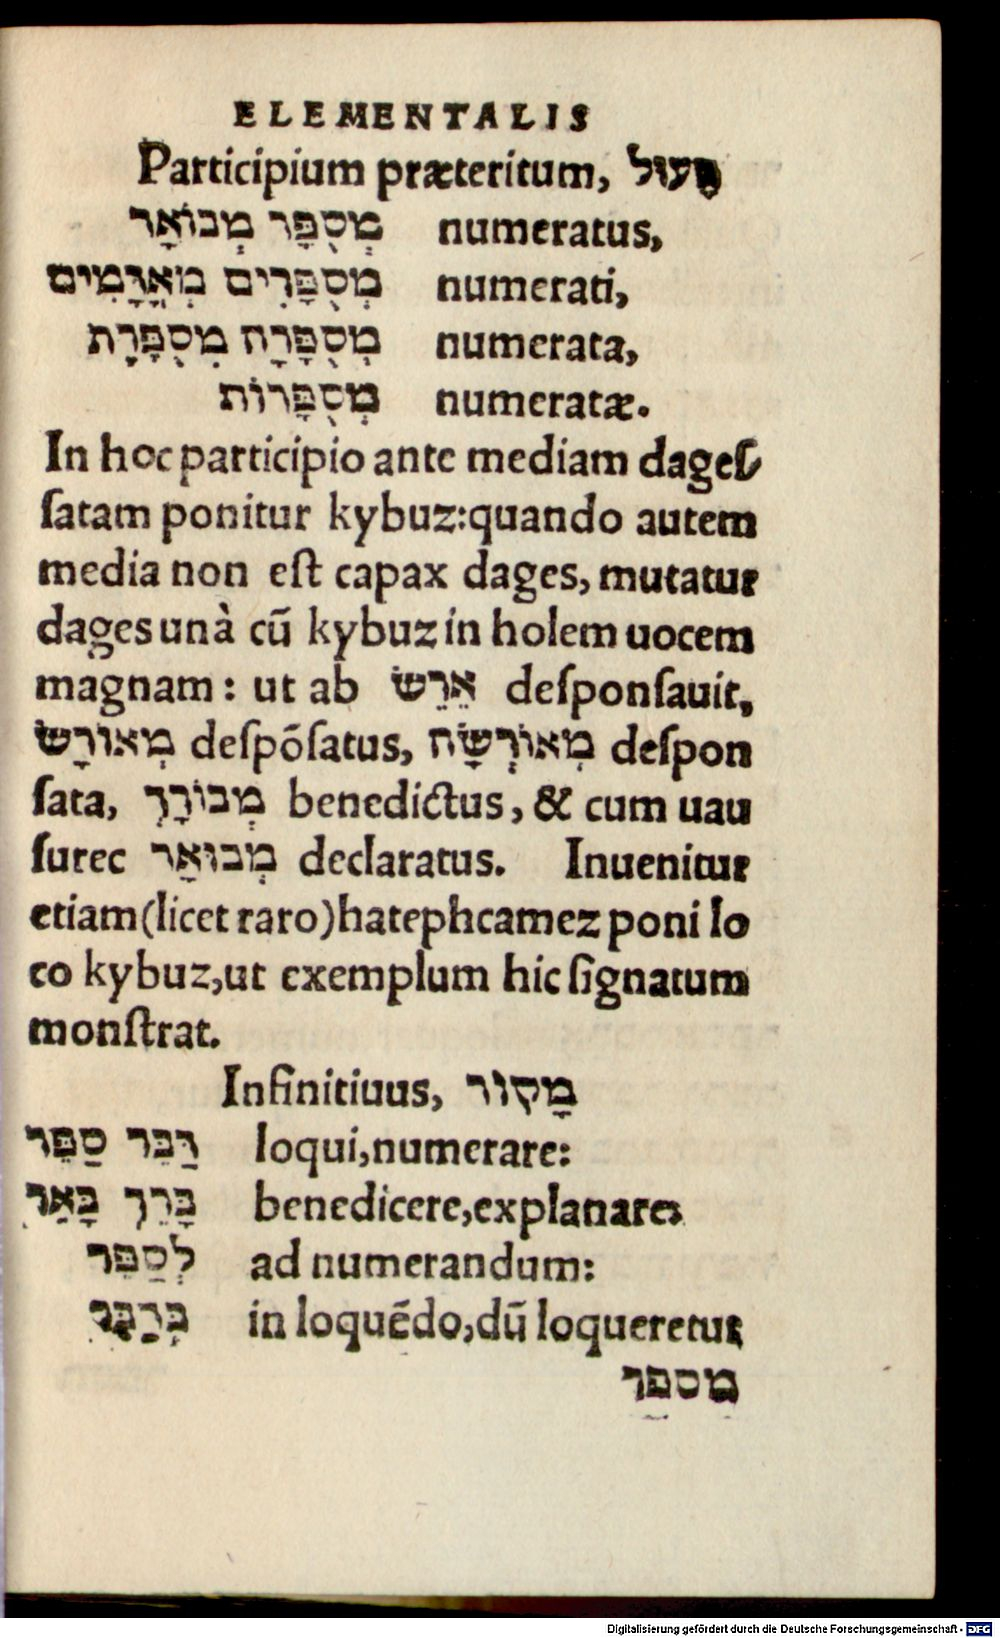 ELEMENTALIS
Participium præteritum, פָּעוּל
numeratus, מְסֻפָּר מְבוֹאָר
numerati, מְסֻפָּרִים מְאֳדָּמִים
numerata, מְסֻפָּרָה מְסֻפָּרֶת
numeratæ. מְסֻפָּרוֹת
In hoc participio ante mediam dageſ
ſatam ponitur kybuz: quando autem
media non eſt capax dages, mutatur
dages unà cū kybuz in holem uocem
magnam: ut ab אֵרֵשׂ deſponſauit,
מְאוֹרָשׂ deſpōſatus, מְאוֹרְשָׂה deſpon
ſata, מְבוֹרָךְ benedictus, & cum uau
ſurec מְבוּאָר declaratus. Inuenitur
etiam (licet raro) hatephcamez poni lo
co kybuz, ut exemplum hic ſignatum
monſtrat.
Infinitiuus, מָקוֹר
loqui, numerare: דַּבֵּר סַפֵּר
benedicere, explanare, בָּרֵךְ בָּאֵר
ad numerandum: לְסַפֵּר
in loquēdo, dū loqueretur בְּדַבֵּר
מספר
Digitalisierung gefördert durch die Deutsche Forschungsgemeinschaft - DFG